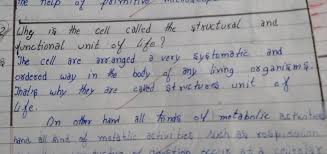 the help of primitive microscope
2) Why is the cell called the structural and
functional unit of life?
The cell are arranged a very systematic and
ordered way in the body of any living organisms.
Thats why they are called structures unit of
life.
On other hand all kinds of metabolic activities
hand all kind of metablic activities such as respiration
occur at a cellular